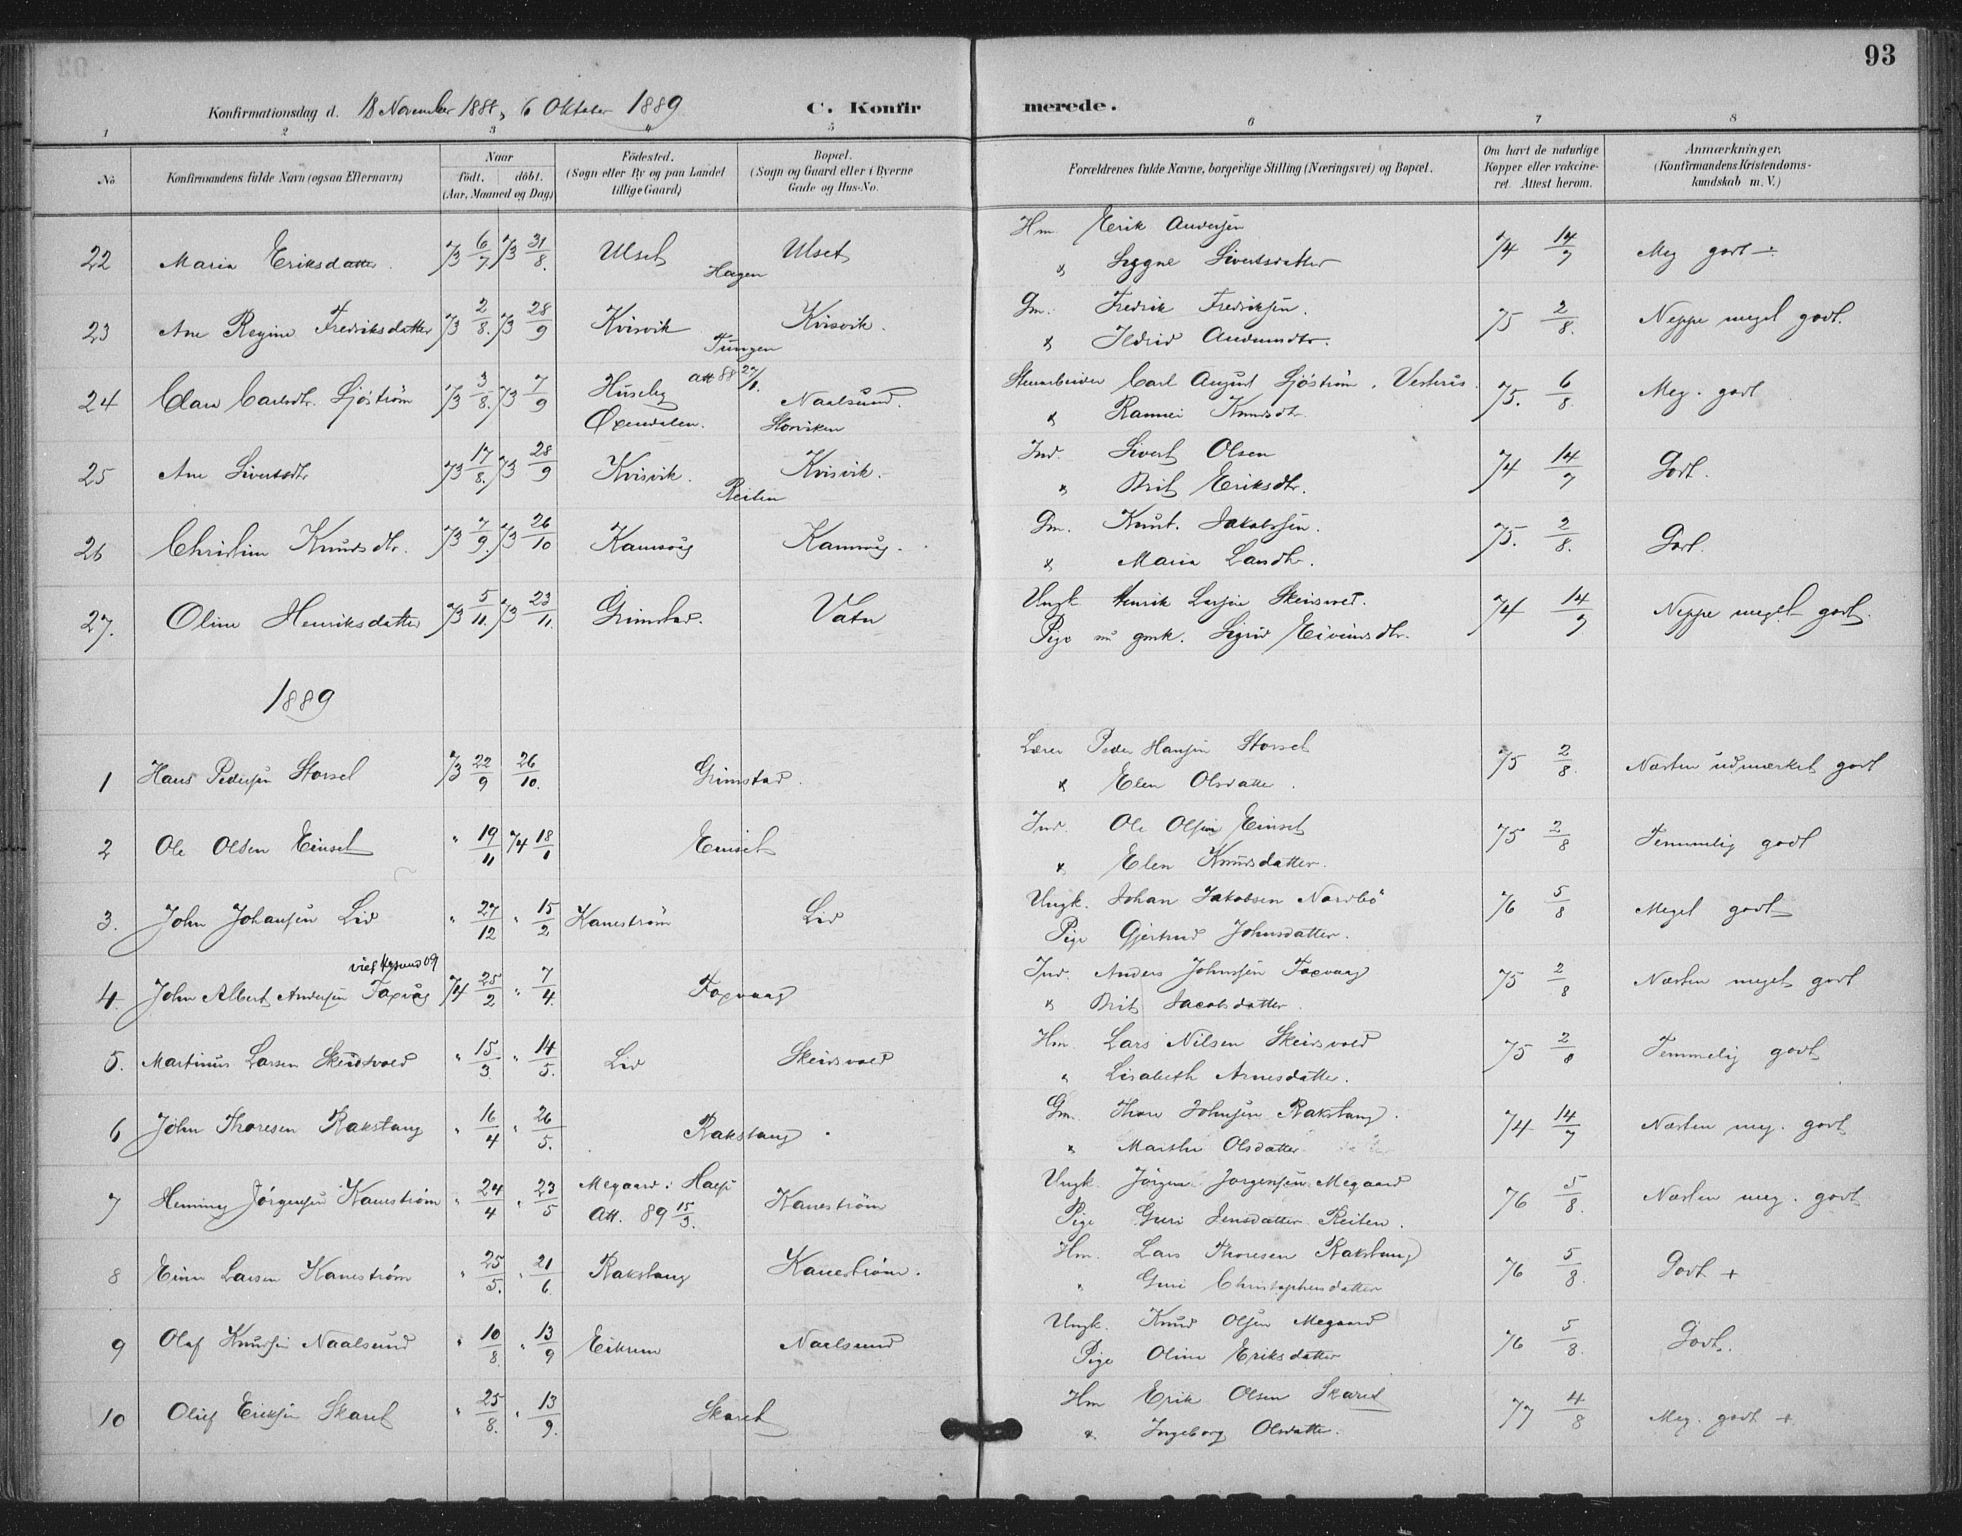 93
Konfirmationsdag d. 18 November 1888, 6 Oktober 1889
C. Konfirmerede.
1 2 3 4 5 6 7 8
No
Konfirmandens fulde Navn (ogsaa Efternavn)
Naar
födt. döbt.
(Aar, Maaned og Dag)
Födested.
(Sogn eller By og paa Landet
tillige Gaard)
Bopæl.
(Sogn og Gaard eller i Byerne
Gade og Hus-No.
Forældrenes fulde Navne, borgerlige Stilling (Næringsvei) og Bopæl.
Om havt de naturlige
Kopper eller vakcine-
ret. Attest herom.
Anmærkninger,
(Konfirmandens Kristendoms-
kundskab m. V.)
22 Maria Eriksdatter 73 6/7 73 31/8. Ulset Hagen Ulset Hm. Erik Andersen 74 14/7 Meg godt ÷
" Siggne Sivertsdatter
23 Ane Regine Fredriksdatter 73 2/8. 73 28/9 Kvisvik Tungen Kvisvik. Gm. Fredrik Fredriksen. 75 2/8. Neppe meget godt.
" Ildrid Amundsdtr.
24 Carlsdtr. Sjöström 73 3/8. 73 7/9 Huseby Öxendalen. att 88 27/1. Naalsund. Storviken Stenarbeider Carl August Sjöström, 75. 6/8. Meg. godt
" Rannei Knudsdtr.
25 Ane Sivertsdtr 73 17/8. 73 28/9 Kvisvik. Reiten Kvisvik. Ind. Sivert Olsen 74 14/7 Godt.
" Brit Eriksdtr.
26 Christine Knudsdtr. 73 7/9. 73 26/10 Kamsvåg Kamsvåg. Gm. Knut Jakobsen. 75. 2/8. Godt.
" Maria Larsdtr.
27. Oline Henriksdatter 73 5/11. 73 23/11. Grimstad. Vatn Ungk. Henrik Larsen Skeisvold. 74 14/7 Neppe meget godt.
Pige nu gmk. Sigrid Eivindsdtr.
1889
1 Hans Pedersen Storset 73 22/9 26/10. Grimstad. Lærer Peder Hansen Storset 75 2/8. Næsten udmærket godt
" Elen Olsdatter.
2 Ole Olsen Einset " 19/11 74 18/1 Einset Ind. Ole Olsen Einset 75 2/8 Temmelig godt
" Elen Knudsdatter.
3. John Johansen Lid " 27/12 " 15/2 Kanestrøm Lid Ungk. Johan Jakobsen Nordbö 76 5/8 Meget godt
Pige Gjertrud Johnsdatter.
4. John Albert Andersen Foxvåg 74 25/2 " 7/4. Foxvaag Ind. Anders Johnsen Foxvaag 75 2/8 Næsten meget godt
" Brit Jacobsdatter.
5. Martinus Larsen Skeidsvold " 15/3. " 14/5. Lid Skeidsvold Hm. Lars Nilsen Skeidsvold 75 2/8 Temmelig godt
" Lisabeth Arnesdatter.
6 John Thoresen Rakstang " 16/4 " 26/5. Rakstang Gm. Thore Johnsen Rakstang. 74 14/7 Næsten meg. godt
" Marthe Olsdatter
7 Heming Jörgensen Kanestrøm " 24/4 " 23/5 Megaard i Halsa Att. 89 15/3. Kanestrøm Ungk. Jörgen Jorgensen Megaard 76 5/8. Næsten meg. godt
Pige Guri Jensdatter Reiten.
8 Einar Larsen Kanestrøm " 25/5. " 21/6 Rakstang Kanestrøm. Hm. Lars Thoresen Rakstang 76 5/8. Godt +
" Guri Christophersdatter
9 Olaf Knudsen Naalsund " 10/8. " 13/9 Eikrem Naalsund Ungk. Knud Olsen Megaard 76 5/8 Godt.
Pige Oline Eriksdatter
10 Oluf Eriksen Skaret " 25/8. " 13/9. Skaret Hm Erik Olsen Skaret 77 4/8 Meg. godt +
" Ingeborg Olsdatter.